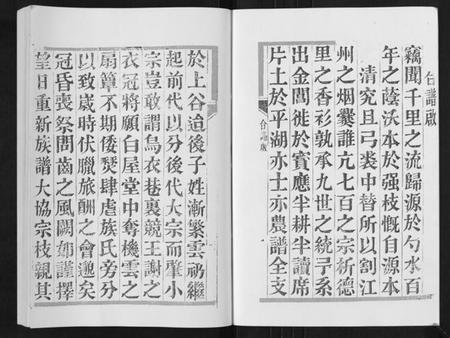 合譜啟
竊聞千里之流歸源於勺水百
年之蔭沃本於强枝慨自源本
清究且弓裘中替所以割江
州之烟爨誰亢七百之宗析德
里之香衫孰承九世之統予系
出金閶徙於實應半耕半讀席
片土於平湖亦士亦農譜全支
合譜啟
於上谷迨後子姓漸繁雲礽繼
起前代以分後代大宗而肇小
宗豈敢謂烏衣巷裏競王謝之
衣冠將願白屋堂中奪機雲之
扇簟不期後煢肆虐族氏旁分
以致歲時伏臘旅酬之會邈矣
冠昏喪祭問齒之風闕如謹擇
望日重新族譜大協宗枝親其